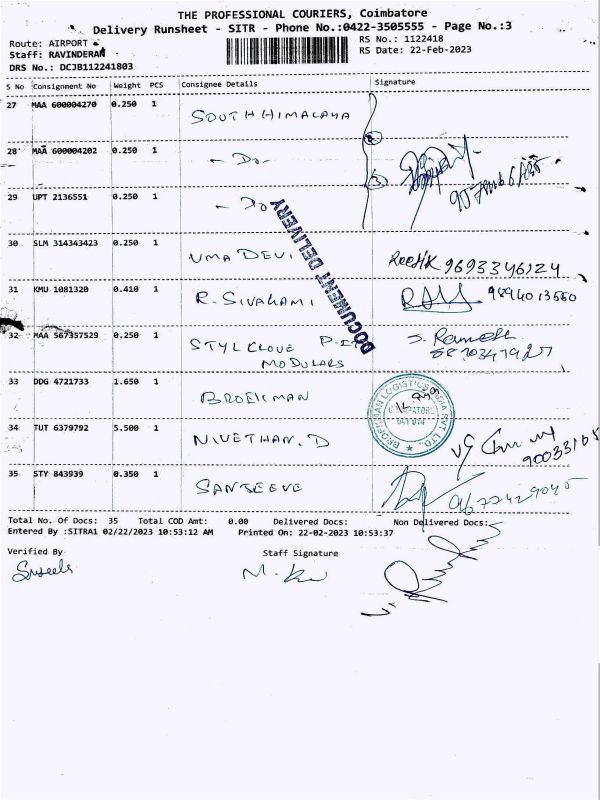 THE PROFESSIONAL COURIERS, Coimbatore
Delivery Runsheet - SITR - Phone No.:0422-3505555 - Page No.:3
Route: AIRPORT
Staff: RAVINDERAN
DRS No.: DCJB112241803
RS No.: 1122418
RS Date: 22-Feb-2023
S No Consignment No Weight PCS Consignee Details Signature
27 MAA 600004270 0.250 1 SOUTH HIMALAYA
28 MAA 600004202 0.250 1 - Do -
29 UPT 2136551 0.250 1 - Do
DOCUMENT DELIVERY
30 SLM 314343423 0.250 1 UMA DEVI 9693346124
31 KMU 1081320 0.410 1 R. SIVAKAMI
32 MAA 567357529 0.250 1 J. Ramesh
MODULARS
33 DDG 4721733 1.650 1 BROEKMAN
BROEKMAN LOGISTICS INDIA PVT. LTD.,
34 TUT 6379792 5.500 1 NIVETHAN. D
35 STY 843939 0.350 1 SANJEEVE
Total No. Of Docs: 35 Total COD Amt: 0.00 Delivered Docs: Non Delivered Docs:
Entered By :SITRA1 02/22/2023 10:53:12 AM Printed On: 22-02-2023 10:53:37
Verified By
Staff Signature